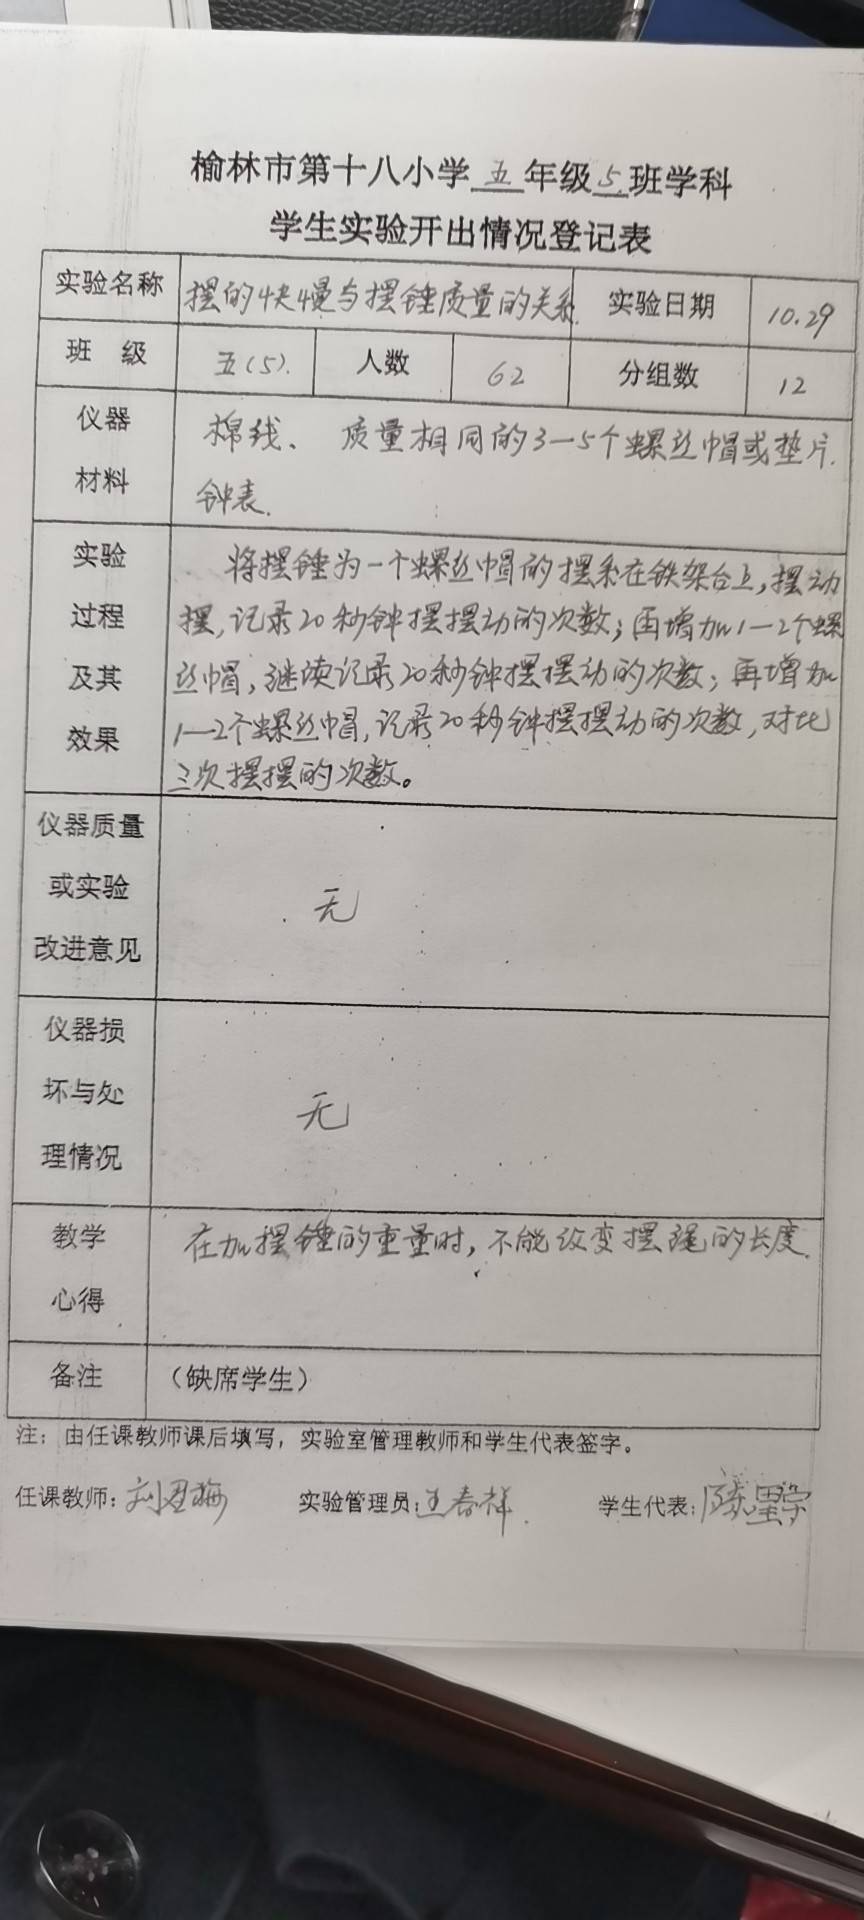 榆林市第十八小学 五 年级 5 班学科
学生实验开出情况登记表
实验名称 摆的快慢与摆锤质量的关系. 实验日期 10.29
班 级 五(5). 人数 62 分组数 12
仪器材料
棉线、 质量相同的3—5个螺丝帽或垫片.
钟表.
实验过程及其效果
将摆锤为一个螺丝帽的摆系在铁架台上,摆动
摆,记录20秒钟摆摆动的次数;再增加1—2个螺
丝帽,继续记录20秒钟摆摆动的次数;再增加
1—2个螺丝帽,记录20秒钟摆摆动的次数,对比
三次摆摆的次数。
仪器质量或实验改进意见
无
仪器损坏与处理情况
无
教学心得
在加摆锤的重量时,不能改变摆绳的长度.
备注 (缺席学生)
注:由任课教师课后填写,实验室管理教师和学生代表签字。
任课教师: 实验管理员:王春祥. 学生代表: